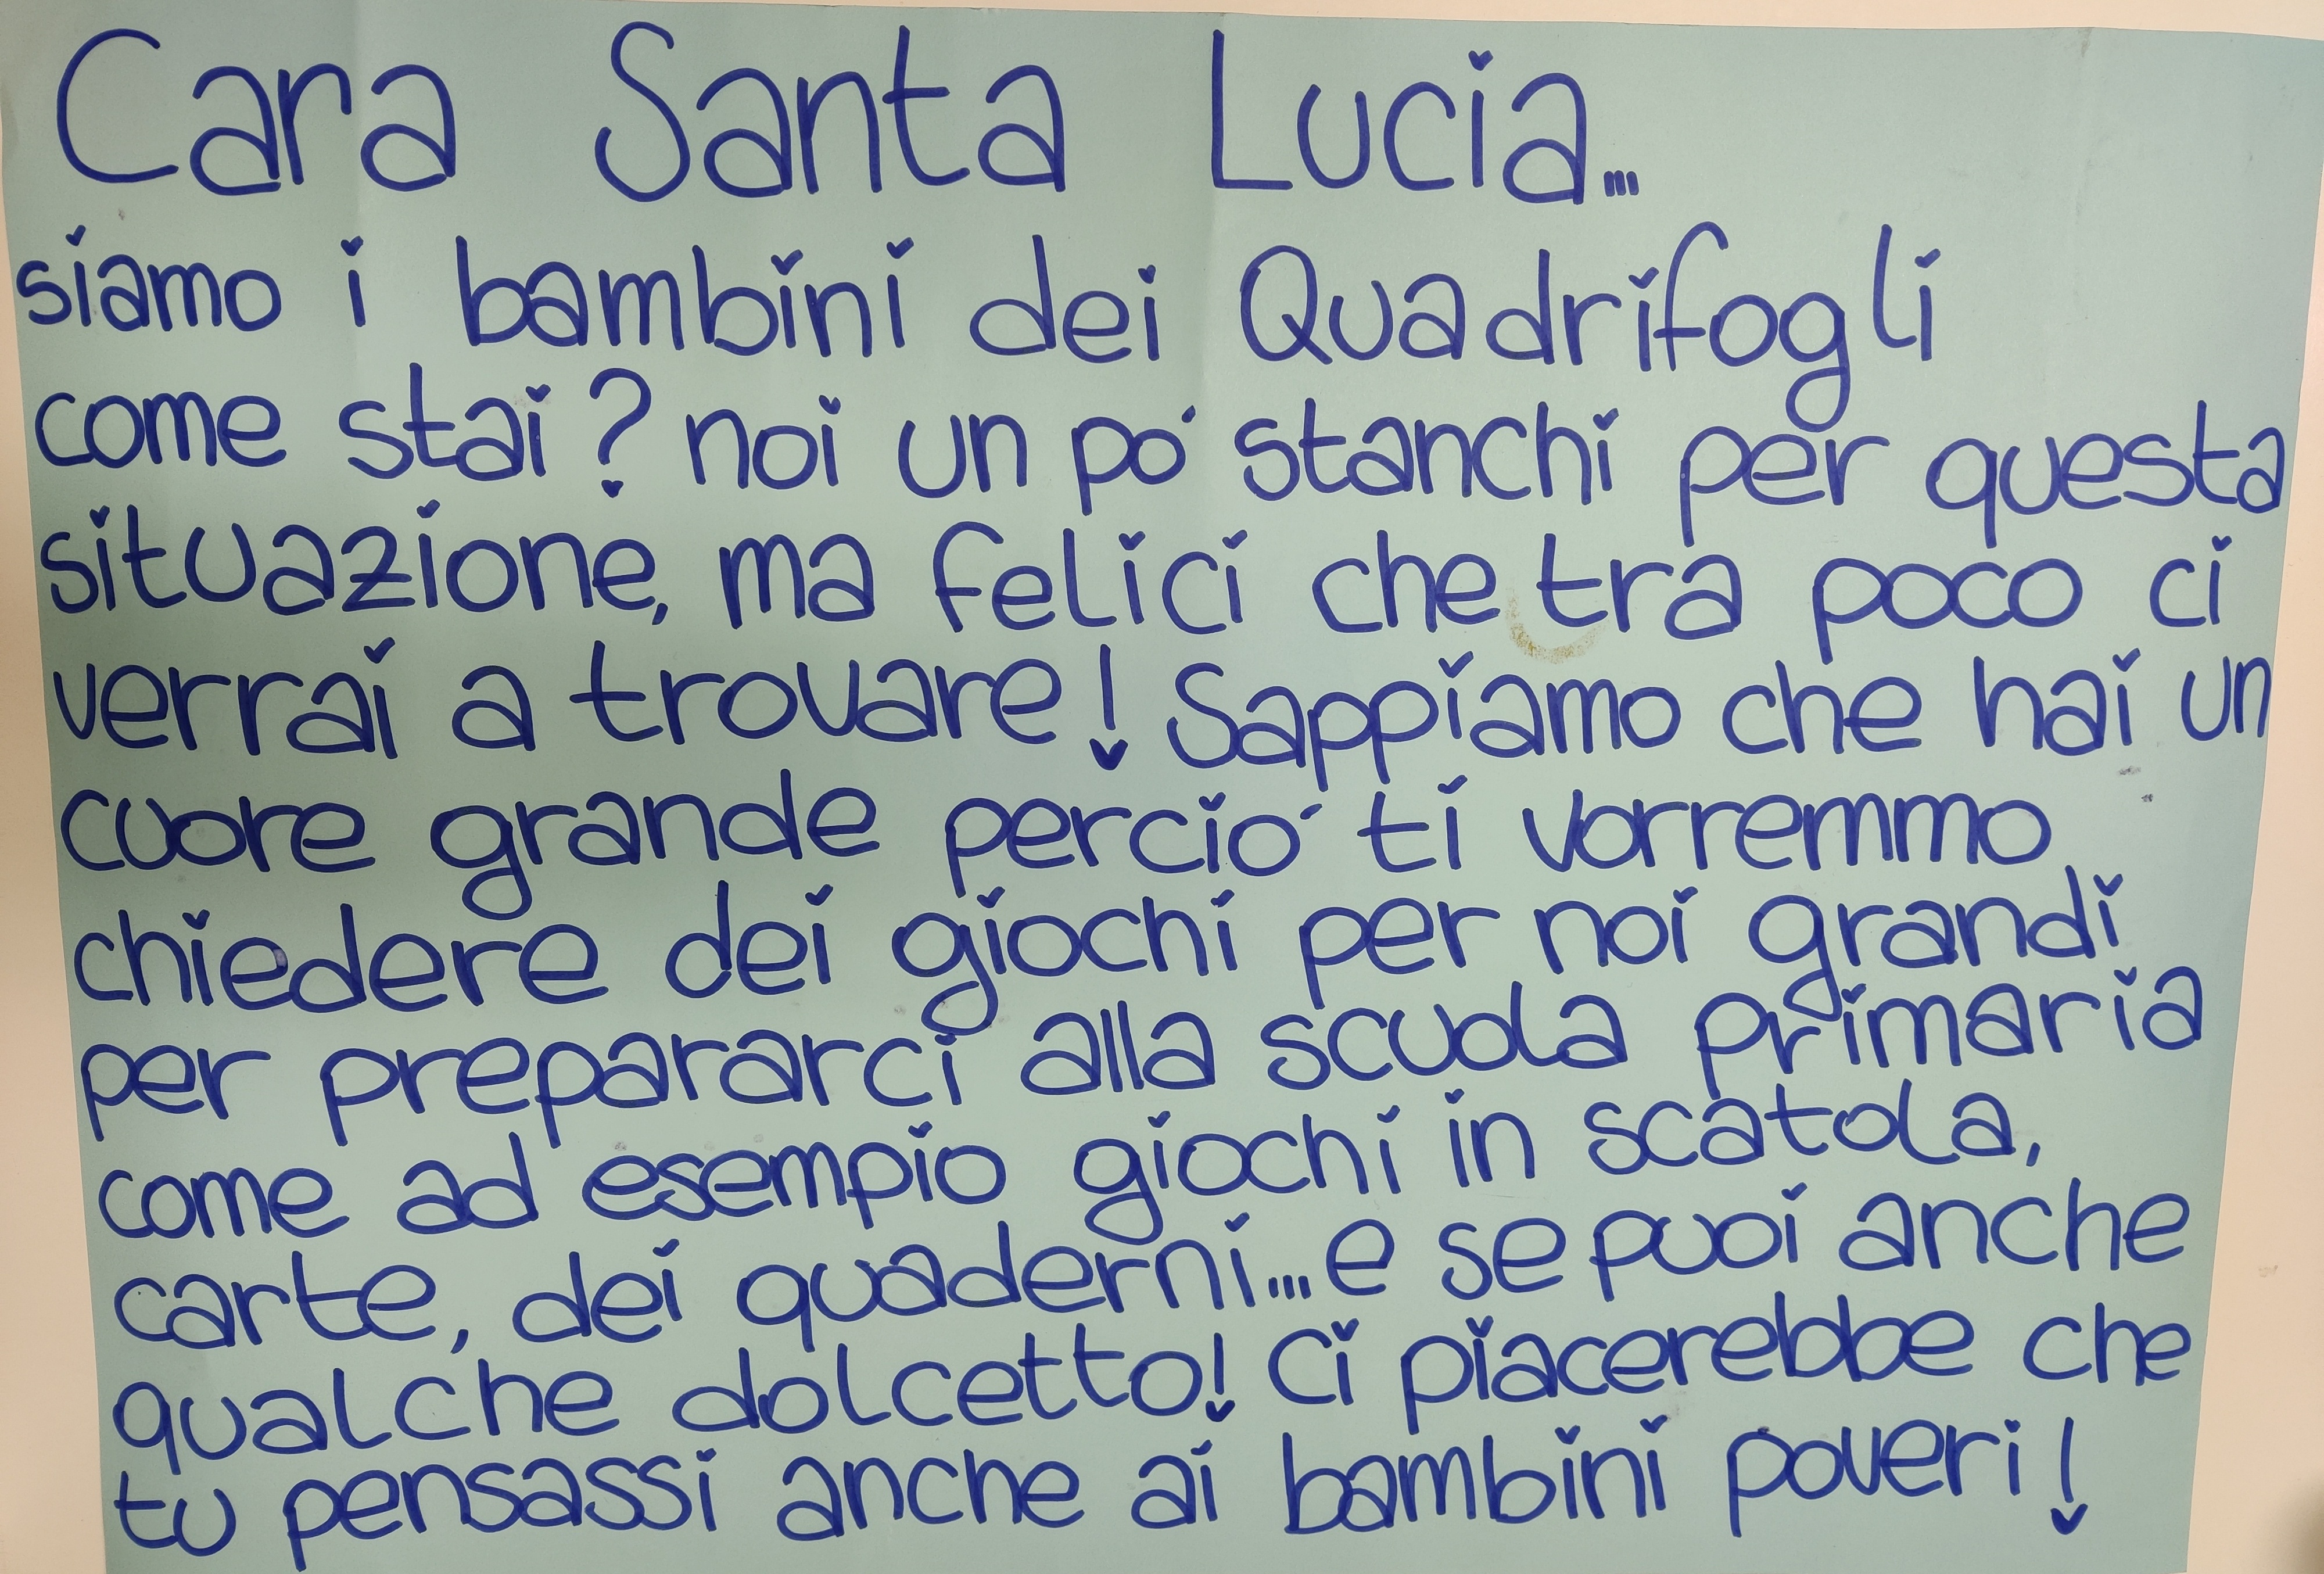 Cara Santa Lucia...
siamo i bambini dei Quadrifogli
come stai? noi un pó stanchi per questa
situazione, ma felici che tra poco ci
verrai a trovare! Sappiamo che hai un
cuore grande perció ti vorremmo
chiedere dei giochi per noi grandi
per prepararci alla scuola primaria
come ad esempio giochi in scatola,
carte, dei quaderni... e se puoi anche
qualche dolcetto! Ci piacerebbe che
tu pensassi anche ai bambini poveri!